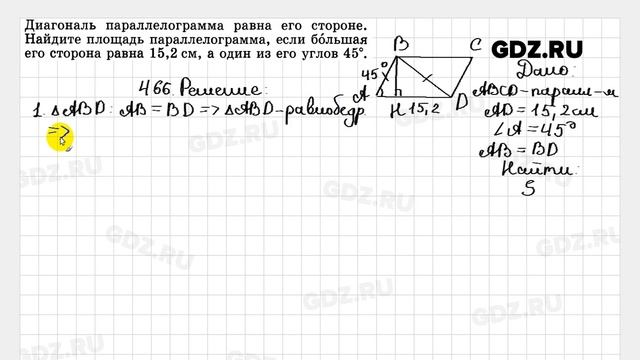 Диагональ параллелограмма равна его стороне.
Найдите площадь параллелограмма, если бо́льшая
его сторона равна 15,2 см, а один из его углов 45°.
GDZ.RU
B C
45°
A H 15,2 D
Дано:
ABCD-паралл-м
AD=15,2см
∠A=45°
AB=BD
Найти:
S
466. Решение:
1. △ABD: AB=BD => △ABD-равнобедр
=>
GDZ.RU
GDZ.RU
GDZ.RU
GDZ.RU
GDZ.RU
GDZ.RU